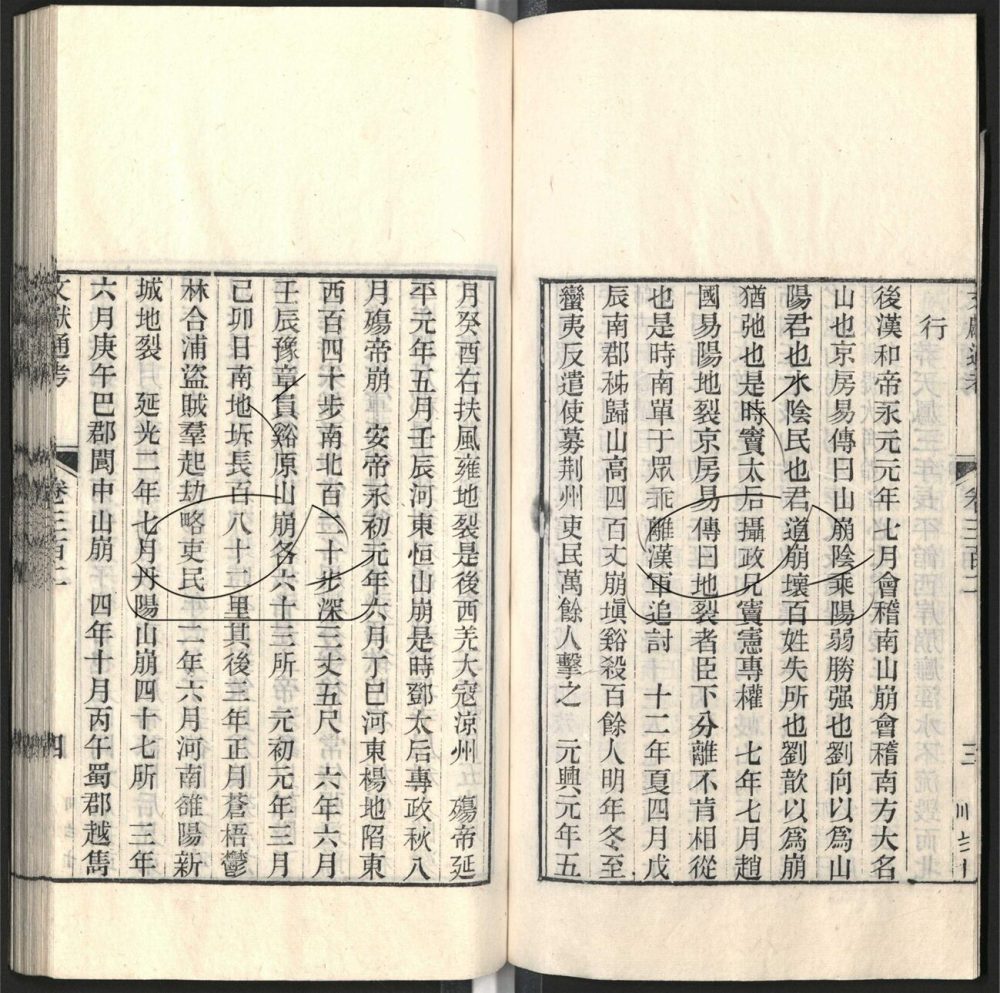 行
後漢和帝永元元年七月會稽南山崩會稽南方大名
山也京房易傳曰山崩陰乘陽弱勝强也劉向以爲山
陽君也水陰民也君道崩壞百姓失所也劉歆以爲崩
猶弛也是時竇太后攝政兄竇憲專權　七年七月趙
國易陽地裂京房易傳曰地裂者臣下分離不肯相從
也是時南單于眾乖離漢軍追討　十二年夏四月戊
辰南郡秭歸山高四百丈崩塡谿殺百餘人明年冬至
蠻夷反遣使募荆州吏民萬餘人擊之　元興元年五
月癸酉右扶風雍地裂是後西羌大寇涼州　殤帝延
平元年五月壬辰河東恒山崩是時鄧太后專政秋八
月殤帝崩　安帝永初元年六月丁巳河東楊地陷東
西百四十步南北百二十步深三丈五尺　六年六月
壬辰豫章員谿原山崩各六十三所　元初元年三月
己卯日南地坼長百八十二里其後三年正月蒼梧鬱
林合浦盜賊羣起劫略吏民　二年六月河南雒陽新
城地裂　延光二年七月丹陽山崩四十七所　三年
六月庚午巴郡閬中山崩　四年十月丙午蜀郡越雋
文獻通考　卷三百二　四